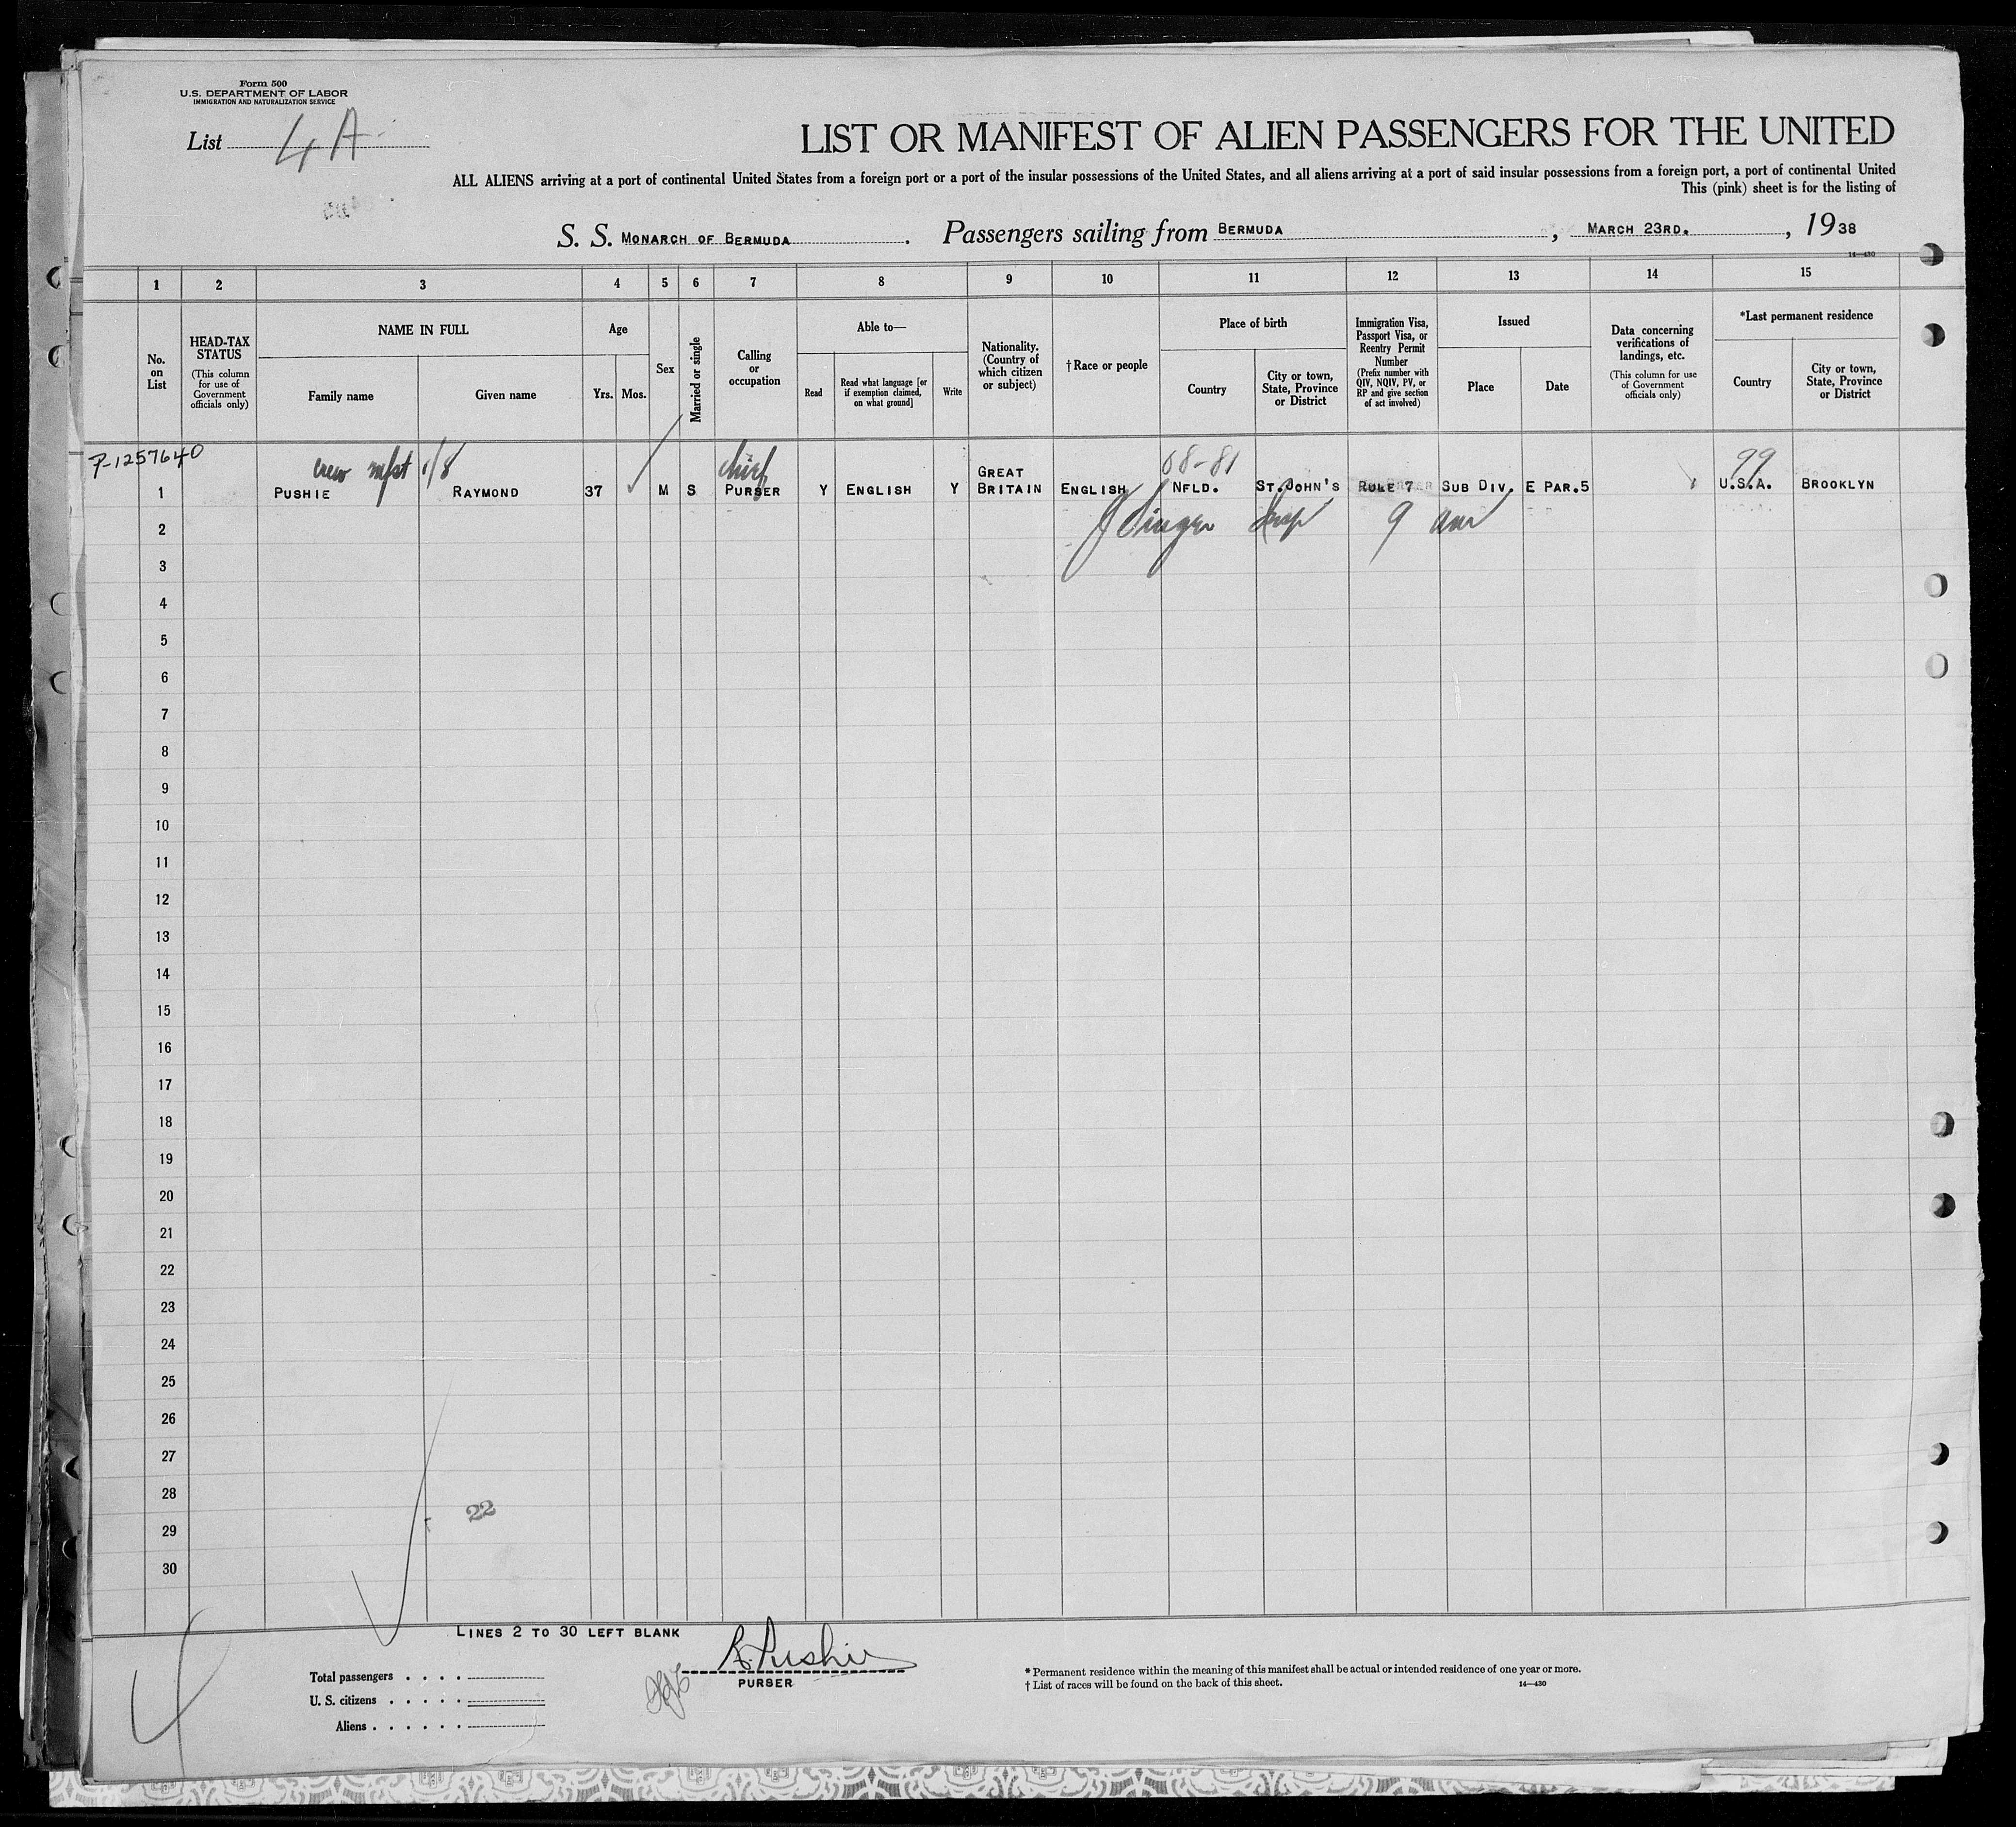 Form 500
U.S. DEPARTMENT OF LABOR
IMMIGRATION AND NATURALIZATION SERVICE
List 4A
LIST OR MANIFEST OF ALIEN PASSENGERS FOR THE UNITED
ALL ALIENS arriving at a port of continental United States from a foreign port or a port of the insular possessions of the United States, and all aliens arriving at a port of said insular possessions from a foreign port, a port of continental United
This (pink) sheet is for the listing of
S. S. MONARCH OF BERMUDA. Passengers sailing from BERMUDA, MARCH 23RD., 1938
14—430
1 2 3 4 5 6 7 8 9 10 11 12 13 14 15
No. on List
HEAD-TAX STATUS
(This column for use of Government officials only)
NAME IN FULL
Family name Given name
Age
Yrs. Mos.
Sex
Married or single
Calling or occupation
Able to—
Read
Read what language [or if exemption claimed, on what ground]
Write
Nationality. (Country of which citizen or subject)
†Race or people
Place of birth
Country
City or town, State, Province or District
Immigration Visa, Passport Visa, or Reentry Permit Number
(Prefix number with QIV, NQIV, PV, or RP and give section of act involved)
Issued
Place Date
Data concerning verifications of landings, etc.
(This column for use of Government officials only)
*Last permanent residence
Country
City or town, State, Province or District
P-1257640 crew mfst 1/8 chief 68-81 99
1 PUSHIE RAYMOND 37 M S PURSER Y ENGLISH Y GREAT BRITAIN ENGLISH NFLD. ST.JOHN'S RULE 7 SUB DIV. E PAR.5 U.S.A. BROOKLYN
2 Insp 9 am
3
4
5
6
7
8
9
10
11
12
13
14
15
16
17
18
19
20
21
22
23
24
25
26
27
28
22
29
30
LINES 2 TO 30 LEFT BLANK
R. Pushie
PURSER
Total passengers . . . .
U. S. citizens . . . . .
Aliens . . . . . .
* Permanent residence within the meaning of this manifest shall be actual or intended residence of one year or more.
† List of races will be found on the back of this sheet.
14—430